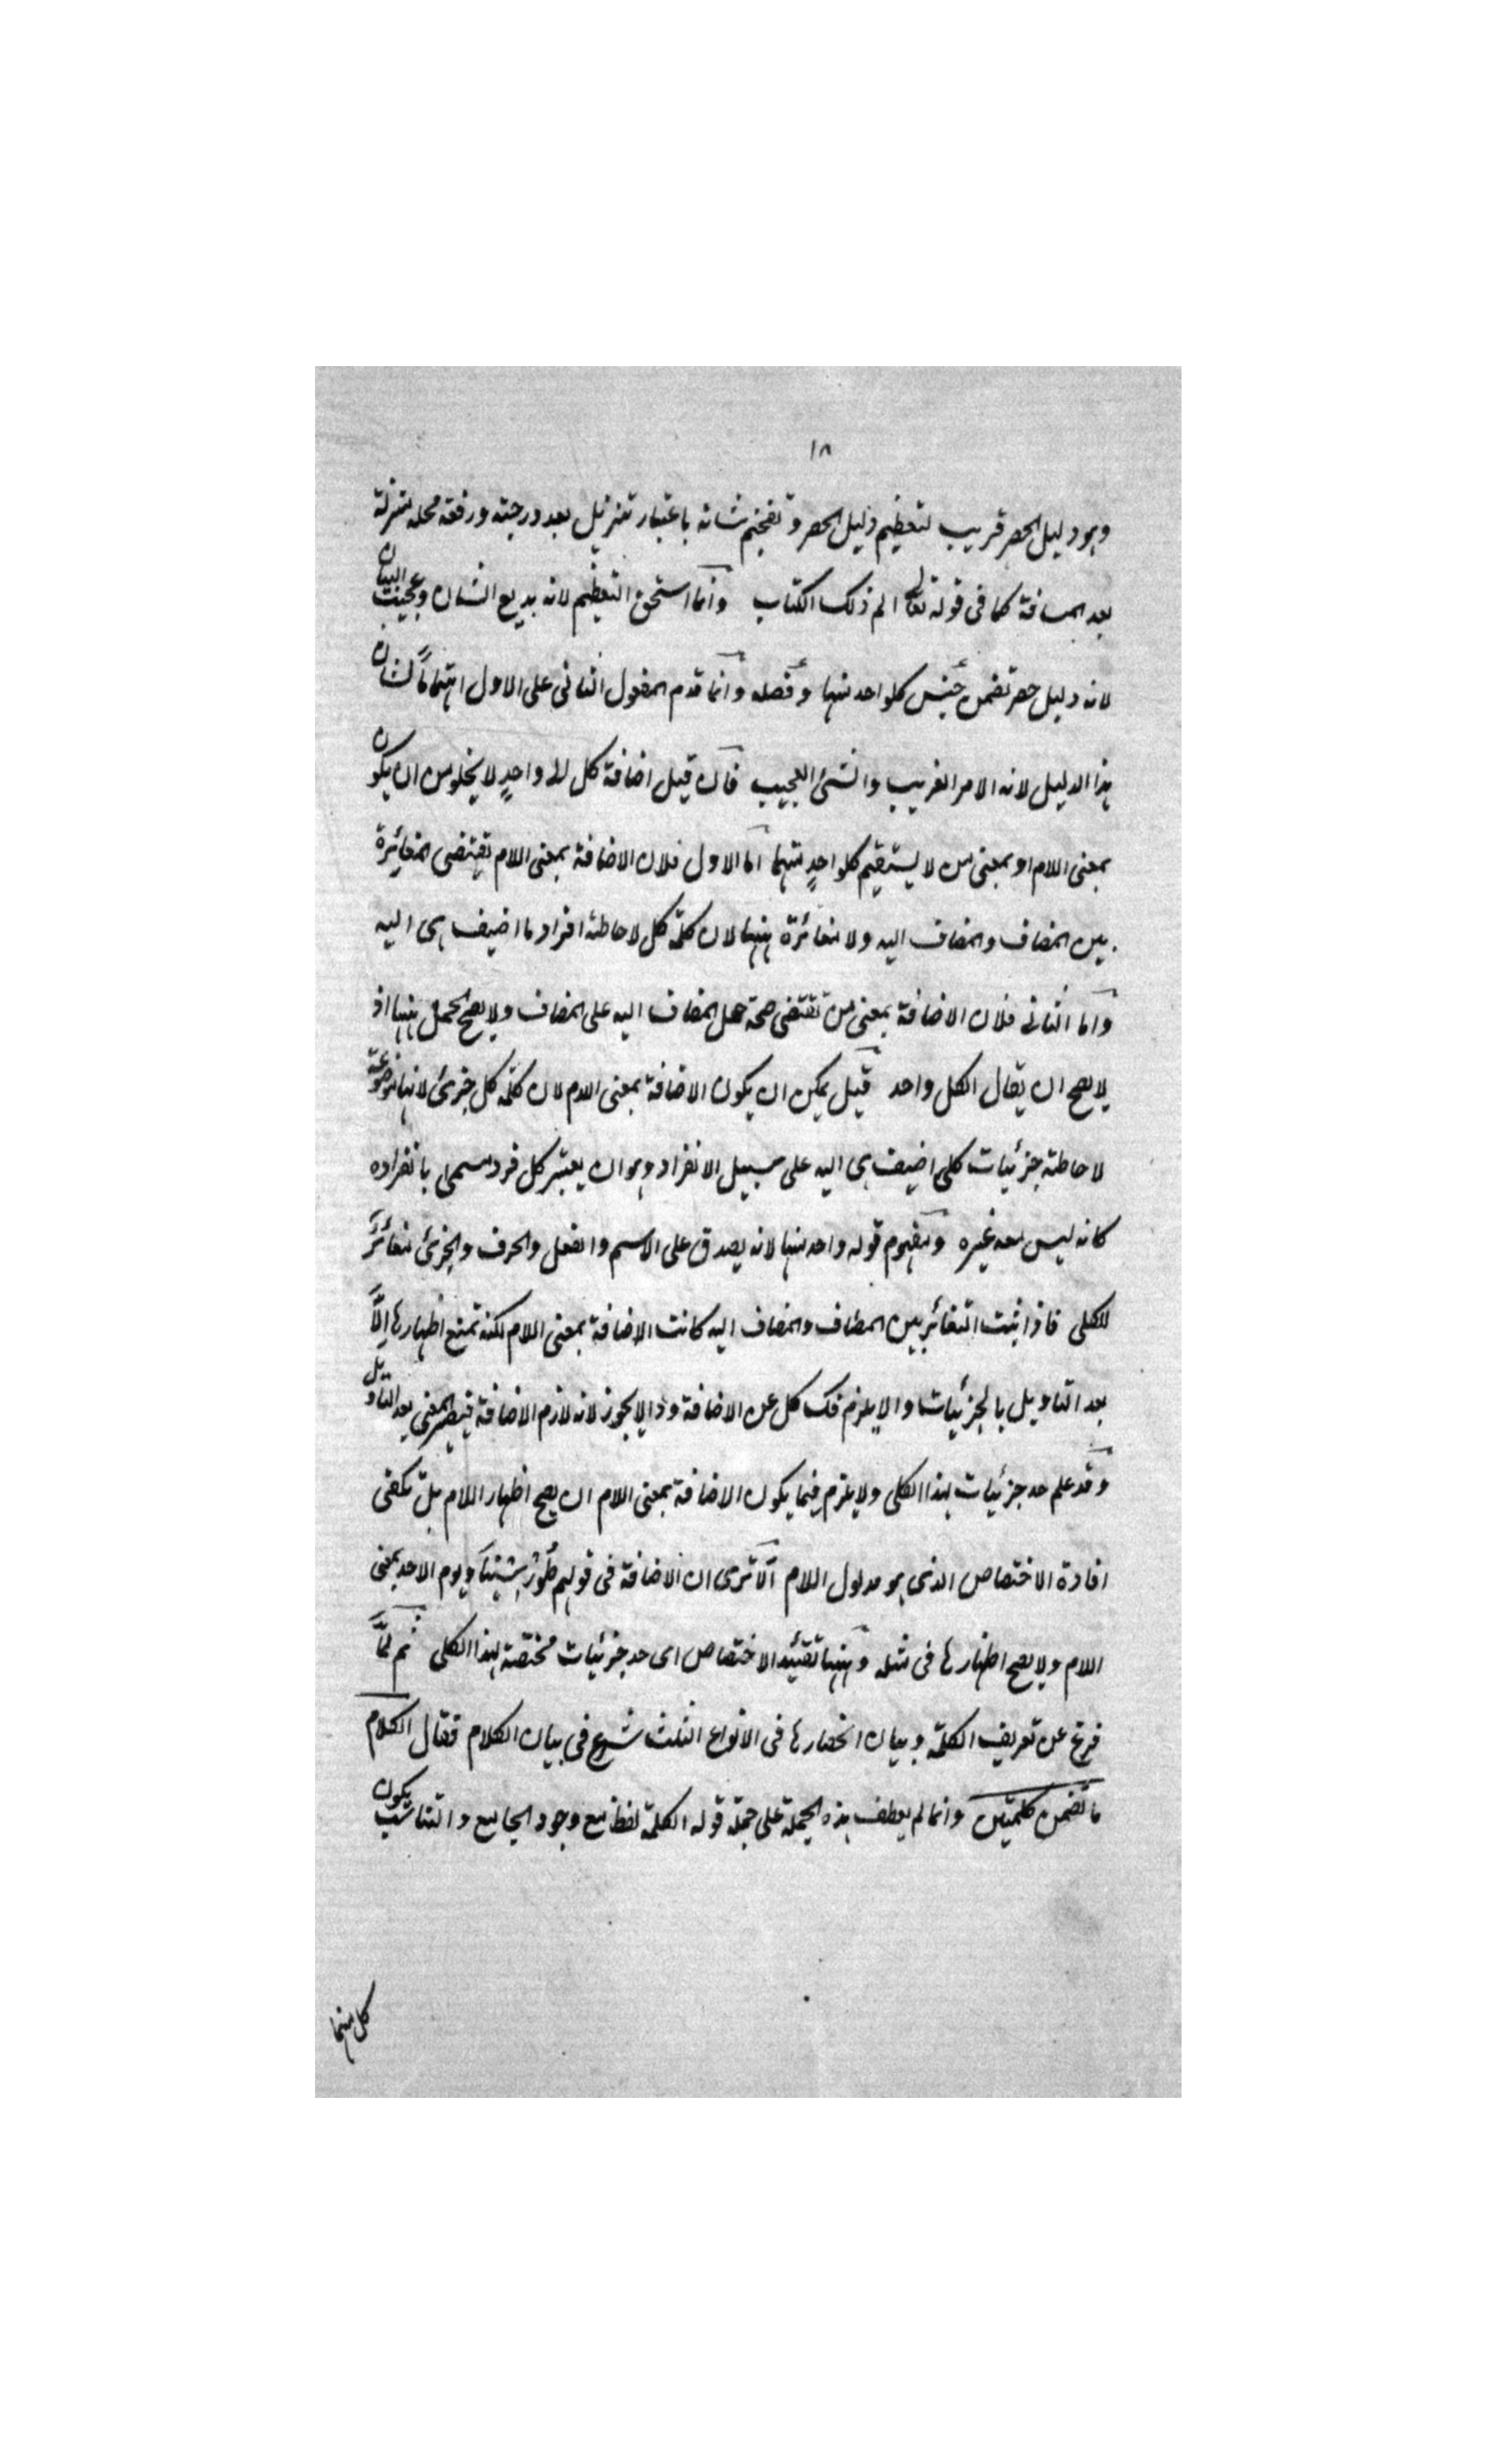 ١٨
وهو دليل الحصر قريب لتعظيم دليل الحصر وتفخيم شانه باعتبار تنزيل بعد درجته ورفعة محله منزلة
بعد المسافة كما فى قوله تعالى الم ذلك الكتاب وانما استحق التعظيم لانه بديع الشان وعجيب البيان
لانه دليل حصر تضمن جنس كلواحد منها وفصله وانما قدم المفعول الثانى على الاول اهتماماً لشان
هذا الدليل لانه الامر الغريب والشئ العجيب فان قيل اضافة كل الى واحدٍ لا يخلو من ان يكون
بمعنى اللام او بمعنى من لا يستقيم كلواحدٍ منهما اما الاول فلان الاضافة بمعنى اللام تقتضى المغائرة
بين المضاف والمضاف اليه ولا مغائرة بينهما لان كلمة كل لاحاطة افراد ما اضيف هى اليه
واما الثانى فلان الاضافة بمعنى من تقتضى صحة حمل المضاف اليه على المضاف ولا يصح الحمل بينهما اذ
لا يصح ان يقال الكل واحد قيل يمكن ان يكون الاضافة بمعنى اللام لان كلمة كل جزئ لانها موضوعة
لاحاطة جزئيات كلى اضيف هى اليه على سبيل الانفراد وهو ان يعتبر كل فرد مسمى بانفراده
كانه ليس معه غيره ومفهوم قوله واحد منها لانه يصدق على الاسم والفعل والحرف والجزئ مغائر
للكلى فاذا ثبت التغائر بين المضاف والمضاف اليه كانت الاضافة بمعنى اللام لكنه تمتنع اظهارها الّا
بعد التاويل بالجزئيات والا يلزم فك كل عن الاضافة وذا لا يجوز لانه لازم الاضافة فيصير المعنى بعد التاويل
وقد علم حد جزئيات لهذا الكلى ولا يلزم فيما يكون الاضافة بمعنى اللام ان يصح اظهار اللام بل تكفى
افادة الاختصاص الذى هو مدلول اللام الا ترى ان الاضافة فى قولهم طور سيناء ويوم الاحد بمعنى
اللام ولا يصح اظهارها فى مثله وههنا تفيد الاختصاص اى حد جزئيات مختصة لهذا الكلى ثم لمّا
فرغ عن تعريف الكلمة وبيان انحصارها فى الانواع الثلث شرع فى بيان الكلام فقال الكلام
ما تضمن كلمتين وانما لم يعطف هذه الجملة على جملة قوله الكلمة لفظ مع وجود الجامع والتناسب يكون
كل منهما